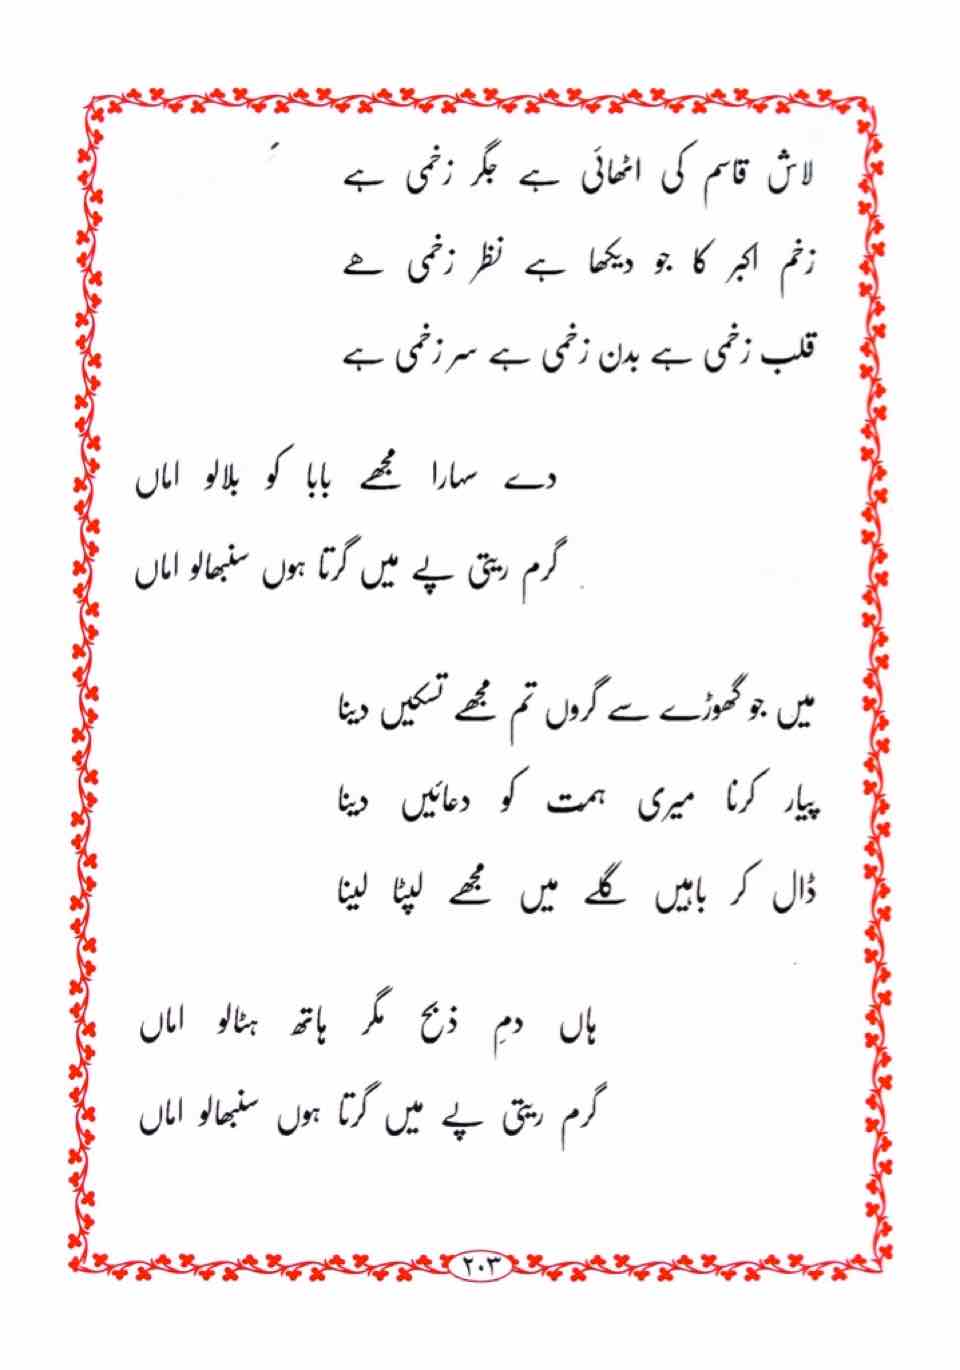 لاش قاسم کی اٹھائی ہے جگر زخمی ہے
زخم اکبر کا جو دیکھا ہے نظر زخمی ھے
قلب زخمی ہے بدن زخمی ہے سر زخمی ہے
دے سہارا مجھے بابا کو بلالو اماں
گرم ریتی پے میں گرتا ہوں سنبھالو اماں
میں جو گھوڑے سے گروں تم مجھے تسکیں دینا
پیار کرنا میری ہمت کو دعائیں دینا
ڈال کر باہیں گلے میں مجھے لپٹا لینا
ہاں دمِ ذبح مگر ہاتھ ہٹالو اماں
گرم ریتی پے میں گرتا ہوں سنبھالو اماں
۲۰۳